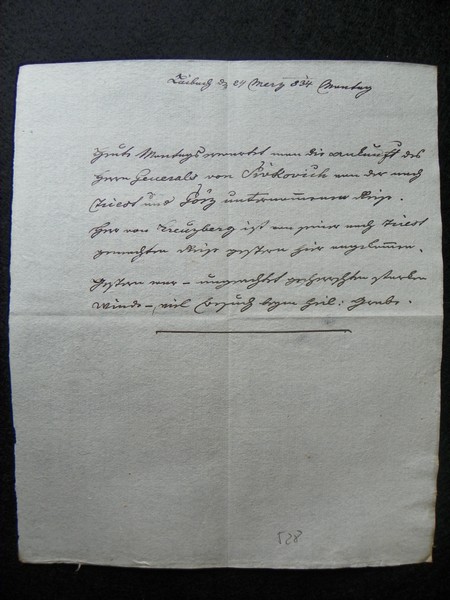 Laibach d 24 Merz 834 Montag
Heute Montags erwartet man die Ankunft des
Herrn Generals von von der nach
Triest und Görz unternommenen Reise.
Herr von Kreuzberg ist von seiner nach Triest
gemachten Reise gestern hier angekommen.
Gestern war – ungeachtet geherrschten starken
Winde –, viel Besuch beym heil: Grabe.
528